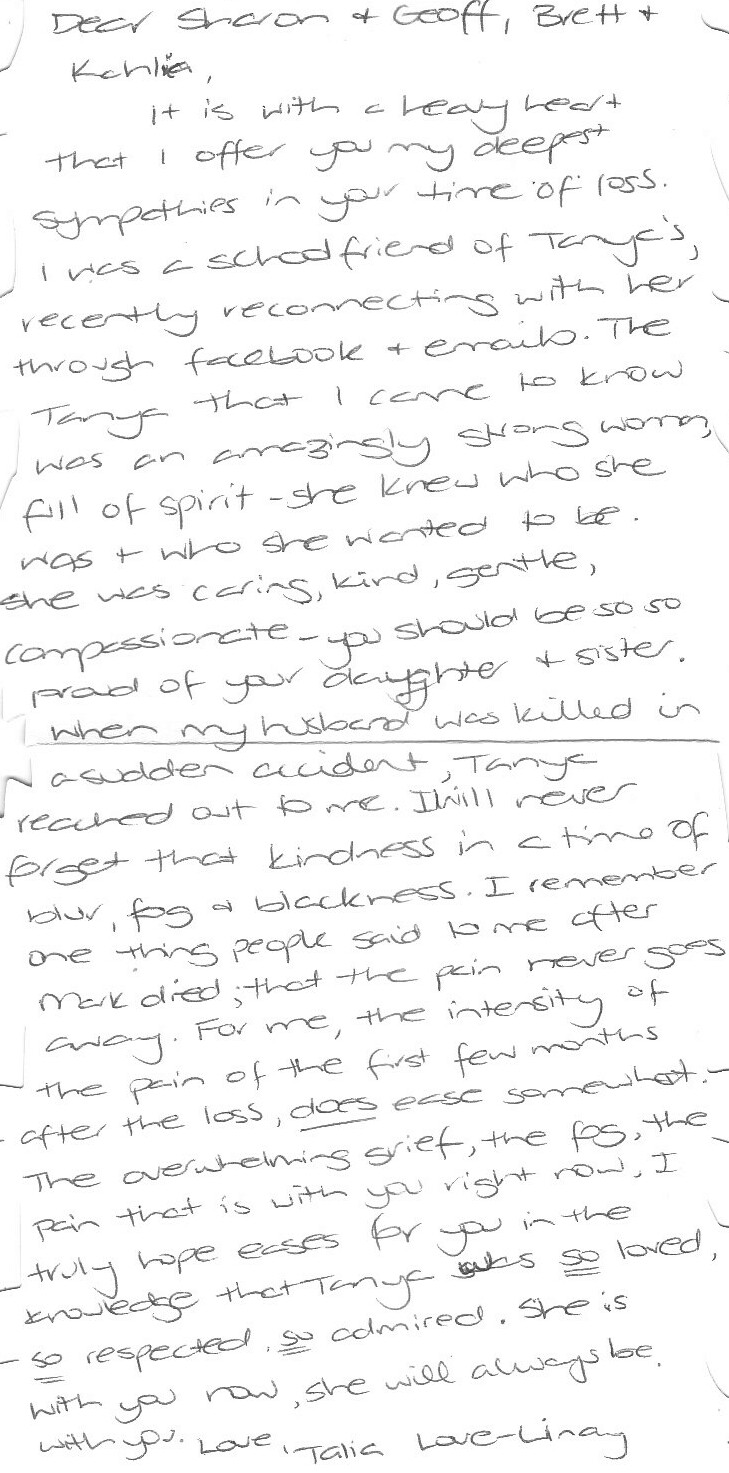 Dear Sharon + Geoff, Brett +
Kahlia,
It is with a heavy heart
that I offer you my deepest
sympathies in your time of loss.
I was a school friend of Tanya's,
recently reconnecting with her
through facebook + emails. The
Tanya that I came to know
was an amazingly strong woman,
full of spirit - she knew who she
was + who she wanted to be.
She was caring, kind, gentle,
compassionate - you should be so so
proud of your daughter + sister.
When my husband was killed in
a sudden accident, Tanya
reached out to me. I will never
forget that kindness in a time of
blur, fog & blackness. I remember
one thing people said to me after
Mark died; that the pain never goes
away. For me, the intensity of
the pain of the first few months
after the loss, does ease somewhat.
The overwhelming grief, the fog, the
pain that is with you right now, I
truly hope eases for you in the
knowledge that Tanya was so loved,
so respected, so admired. She is
with you now, she will always be
with you. Love, Talia Love-Linay